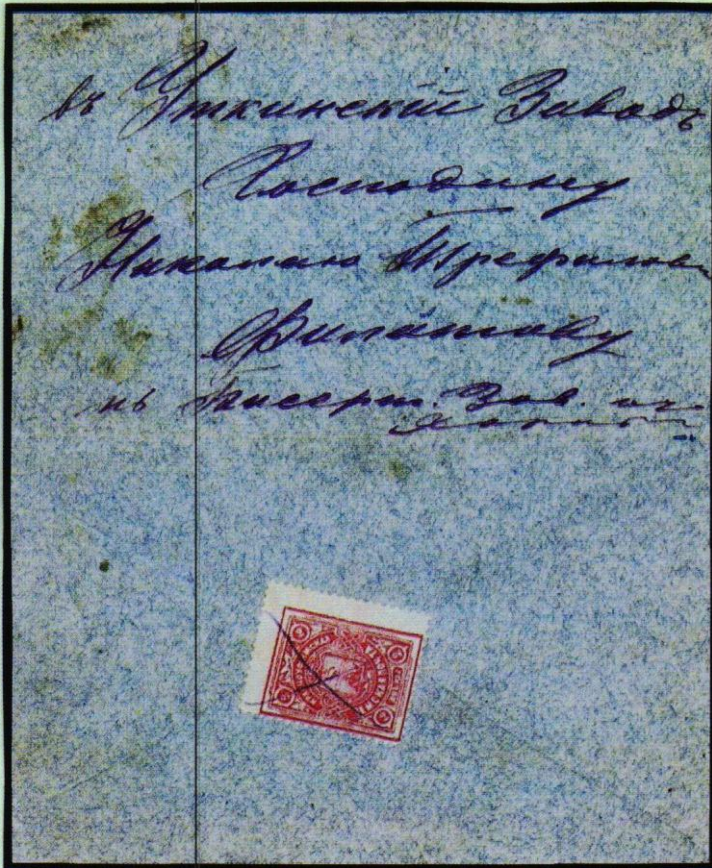 въ Уткинскій Заводъ
Господину
Николаю Трефилов
Филатову
Зав.